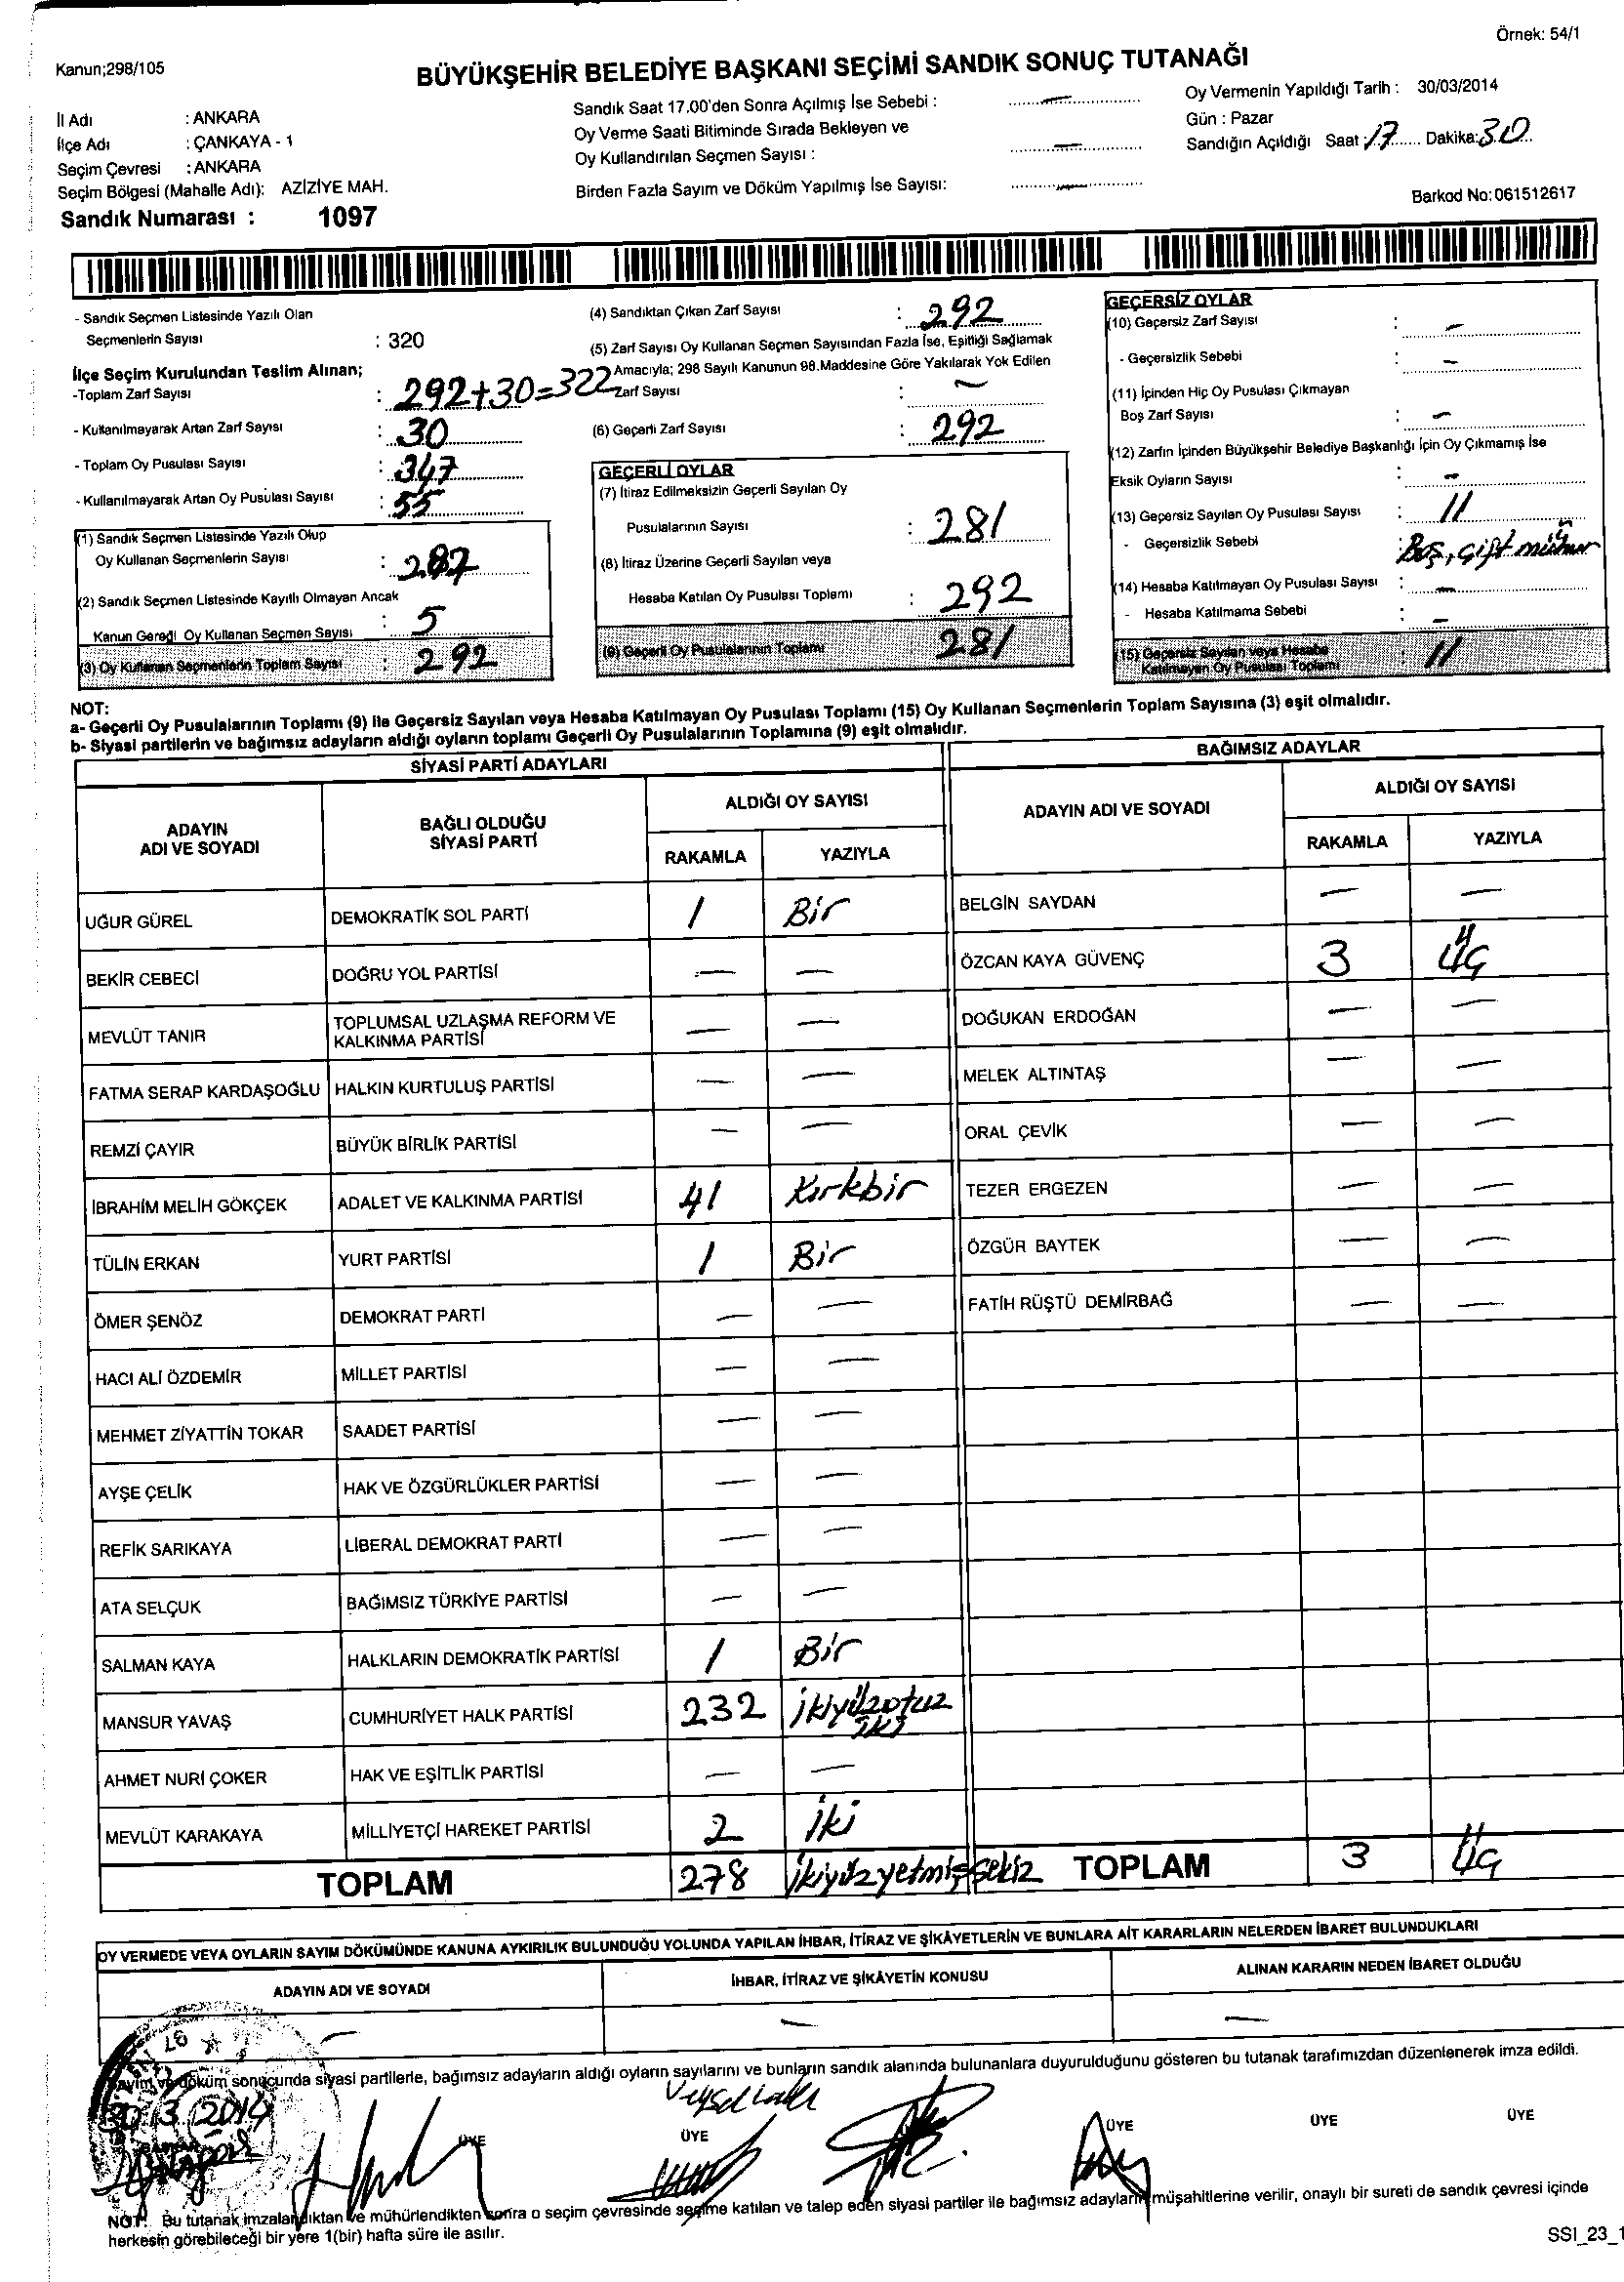 Örnek: 54/1
Kanun;298/105
BÜYÜKŞEHİR BELEDİYE BAŞKANI SEÇİMİ SANDIK SONUÇ TUTANAĞI
İl Adı : ANKARA
İlçe Adı : ÇANKAYA - 1
Seçim Çevresi : ANKARA
Seçim Bölgesi (Mahalle Adı): AZİZİYE MAH.
Sandık Numarası : 1097
Sandık Saat 17.00'den Sonra Açılmış İse Sebebi : —
Oy Verme Saati Bitiminde Sırada Bekleyen ve
Oy Kullandırılan Seçmen Sayısı : —
Birden Fazla Sayım ve Döküm Yapılmış İse Sayısı: —
Oy Vermenin Yapıldığı Tarih : 30/03/2014
Gün : Pazar
Sandığın Açıldığı Saat : 17 Dakika: 30
Barkod No: 061512617
- Sandık Seçmen Listesinde Yazılı Olan
Seçmenlerin Sayısı : 320
İlçe Seçim Kurulundan Teslim Alınan;
-Toplam Zarf Sayısı : 292+30=322
- Kullanılmayarak Artan Zarf Sayısı : 30
- Toplam Oy Pusulası Sayısı : 347
- Kullanılmayarak Artan Oy Pusulası Sayısı : 55
(1) Sandık Seçmen Listesinde Yazılı Olup
Oy Kullanan Seçmenlerin Sayısı : 287
(2) Sandık Seçmen Listesinde Kayıtlı Olmayan Ancak
Kanun Gereği Oy Kullanan Seçmen Sayısı : 5
(3) Oy Kullanan Seçmenlerin Toplam Sayısı : 292
(4) Sandıktan Çıkan Zarf Sayısı : 292
(5) Zarf Sayısı Oy Kullanan Seçmen Sayısından Fazla İse, Eşitliği Sağlamak
Amacıyla; 298 Sayılı Kanunun 98.Maddesine Göre Yakılarak Yok Edilen
Zarf Sayısı : —
(6) Geçerli Zarf Sayısı : 292
GEÇERLİ OYLAR
(7) İtiraz Edilmeksizin Geçerli Sayılan Oy
Pusulalarının Sayısı : 281
(8) İtiraz Üzerine Geçerli Sayılan veya
Hesaba Katılan Oy Pusulası Toplamı : 292
(9) Geçerli Oy Pusulalarının Toplamı 281
GEÇERSİZ OYLAR
(10) Geçersiz Zarf Sayısı : —
- Geçersizlik Sebebi : —
(11) İçinden Hiç Oy Pusulası Çıkmayan
Boş Zarf Sayısı : —
(12) Zarfın İçinden Büyükşehir Belediye Başkanlığı İçin Oy Çıkmamış İse
Eksik Oyların Sayısı : —
(13) Geçersiz Sayılan Oy Pusulası Sayısı : 11
- Geçersizlik Sebebi : Boş, çift mühür
(14) Hesaba Katılmayan Oy Pusulası Sayısı : —
- Hesaba Katılmama Sebebi : —
(15) Geçersiz Sayılan veya Hesaba
Katılmayan Oy Pusulası Toplamı : 11
NOT:
a- Geçerli Oy Pusulalarının Toplamı (9) ile Geçersiz Sayılan veya Hesaba Katılmayan Oy Pusulası Toplamı (15) Oy Kullanan Seçmenlerin Toplam Sayısına (3) eşit olmalıdır.
b- Siyasi partilerin ve bağımsız adayların aldığı oyların toplamı Geçerli Oy Pusulalarının Toplamına (9) eşit olmalıdır.
SİYASİ PARTİ ADAYLARI
ADAYIN ADI VE SOYADI BAĞLI OLDUĞU SİYASİ PARTİ ALDIĞI OY SAYISI
RAKAMLA YAZIYLA
UĞUR GÜREL DEMOKRATİK SOL PARTİ 1 Bir
BEKİR CEBECİ DOĞRU YOL PARTİSİ — —
MEVLÜT TANIR TOPLUMSAL UZLAŞMA REFORM VE KALKINMA PARTİSİ — —
FATMA SERAP KARDAŞOĞLU HALKIN KURTULUŞ PARTİSİ — —
REMZİ ÇAYIR BÜYÜK BİRLİK PARTİSİ — —
İBRAHİM MELİH GÖKÇEK ADALET VE KALKINMA PARTİSİ 41 Kırkbir
TÜLİN ERKAN YURT PARTİSİ 1 Bir
ÖMER ŞENÖZ DEMOKRAT PARTİ — —
HACI ALİ ÖZDEMİR MİLLET PARTİSİ — —
MEHMET ZİYATTİN TOKAR SAADET PARTİSİ — —
AYŞE ÇELİK HAK VE ÖZGÜRLÜKLER PARTİSİ — —
REFİK SARIKAYA LİBERAL DEMOKRAT PARTİ — —
ATA SELÇUK BAĞIMSIZ TÜRKİYE PARTİSİ — —
SALMAN KAYA HALKLARIN DEMOKRATİK PARTİSİ 1 Bir
MANSUR YAVAŞ CUMHURİYET HALK PARTİSİ 232 ikiyüzotuz iki
AHMET NURİ ÇOKER HAK VE EŞİTLİK PARTİSİ — —
MEVLÜT KARAKAYA MİLLİYETÇİ HAREKET PARTİSİ 2 iki
TOPLAM 278 ikiyüzyetmişsekiz
BAĞIMSIZ ADAYLAR
ADAYIN ADI VE SOYADI ALDIĞI OY SAYISI
RAKAMLA YAZIYLA
BELGİN SAYDAN — —
ÖZCAN KAYA GÜVENÇ 3 Üç
DOĞUKAN ERDOĞAN — —
MELEK ALTINTAŞ — —
ORAL ÇEVİK — —
TEZER ERGEZEN — —
ÖZGÜR BAYTEK — —
FATİH RÜŞTÜ DEMİRBAĞ — —
TOPLAM 3 Üç
OY VERMEDE VEYA OYLARIN SAYIM DÖKÜMÜNDE KANUNA AYKIRILIK BULUNDUĞU YOLUNDA YAPILAN İHBAR, İTİRAZ VE ŞİKÂYETLERİN VE BUNLARA AİT KARARLARIN NELERDEN İBARET BULUNDUKLARI
ADAYIN ADI VE SOYADI İHBAR, İTİRAZ VE ŞİKÂYETİN KONUSU ALINAN KARARIN NEDEN İBARET OLDUĞU
— — —
Sayım ve döküm sonucunda siyasi partilerle, bağımsız adayların aldığı oyların sayılarını ve bunların sandık alanında bulunanlara duyurulduğunu gösteren bu tutanak tarafımızdan düzenlenerek imza edildi.
30.3.2014
BAŞKAN ÜYE ÜYE ÜYE ÜYE ÜYE
NOT: Bu tutanak imzalandıktan ve mühürlendikten sonra o seçim çevresinde seçime katılan ve talep eden siyasi partiler ile bağımsız adayların müşahitlerine verilir, onaylı bir sureti de sandık çevresi içinde
herkesin görebileceği bir yere 1(bir) hafta süre ile asılır.
SSI_23_1